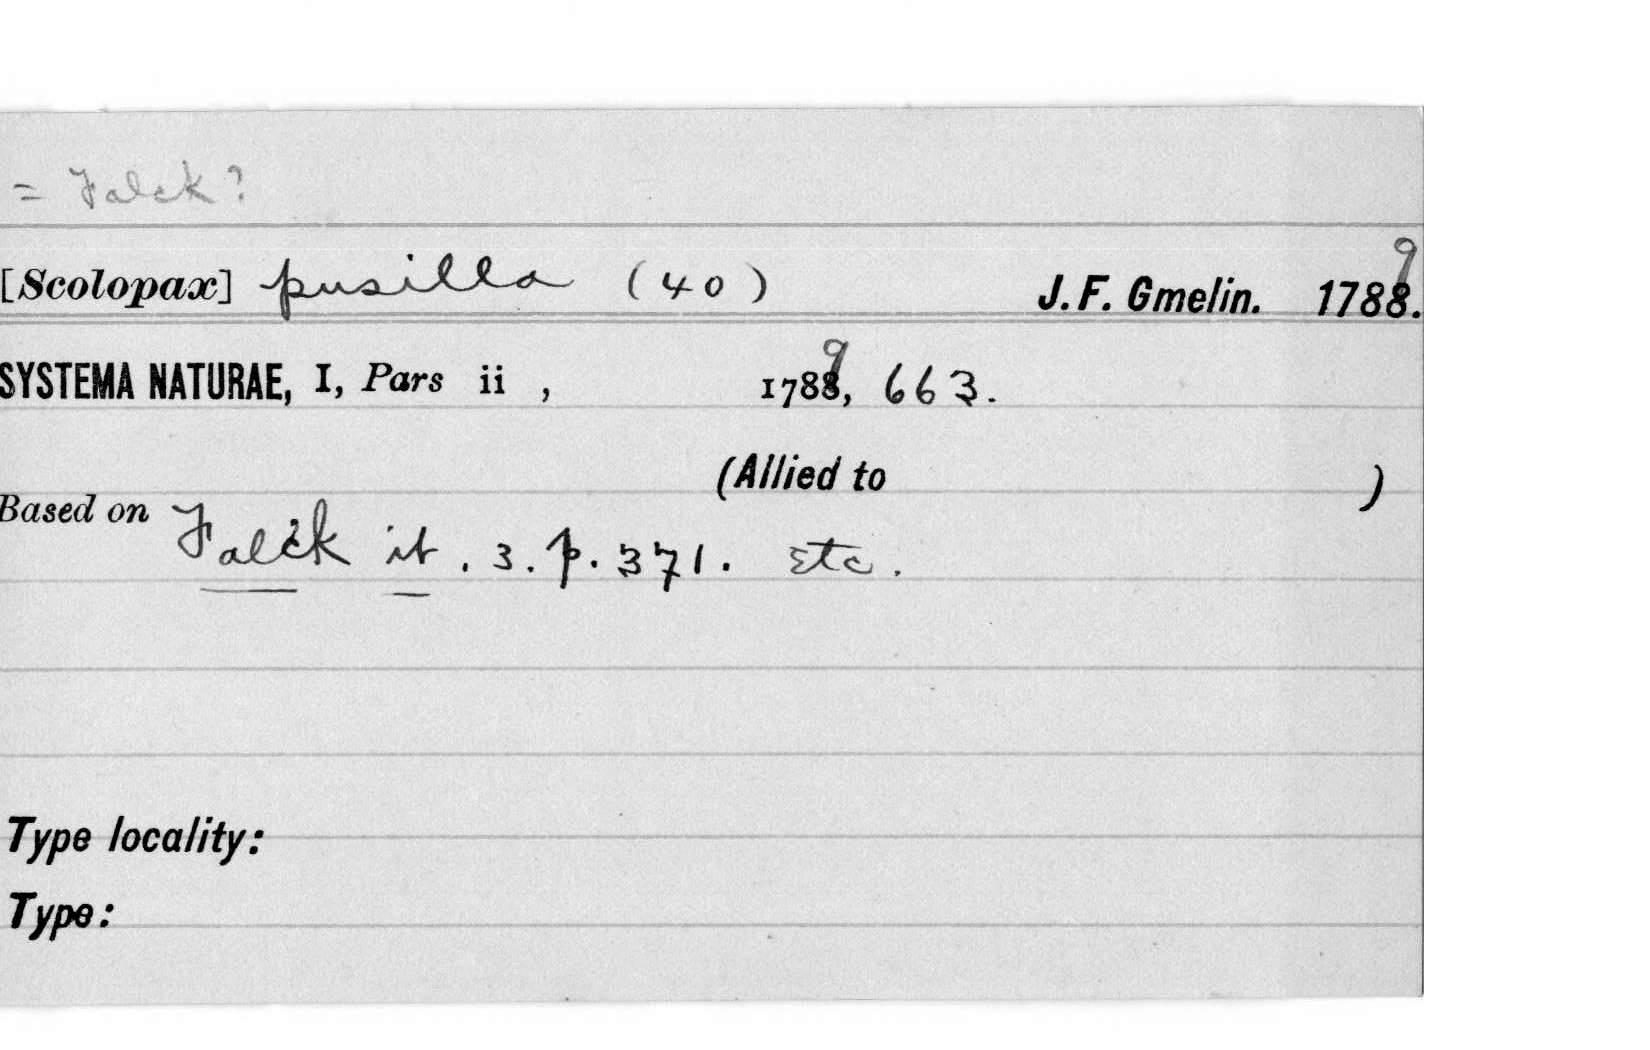 = Falck?
[Scolopax] pusilla (40) J. F. Gmelin. 1789.
SYSTEMA NATURAE, I, Pars ii , 1789, 663.
(Allied to )
Based on Falck it. 3. p. 371. Etc.
Type locality:
Type: